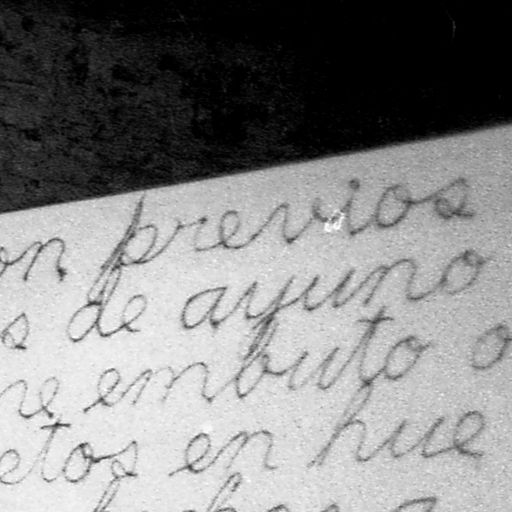 on previos
s de ayuno
ne embuto o
etos en hue